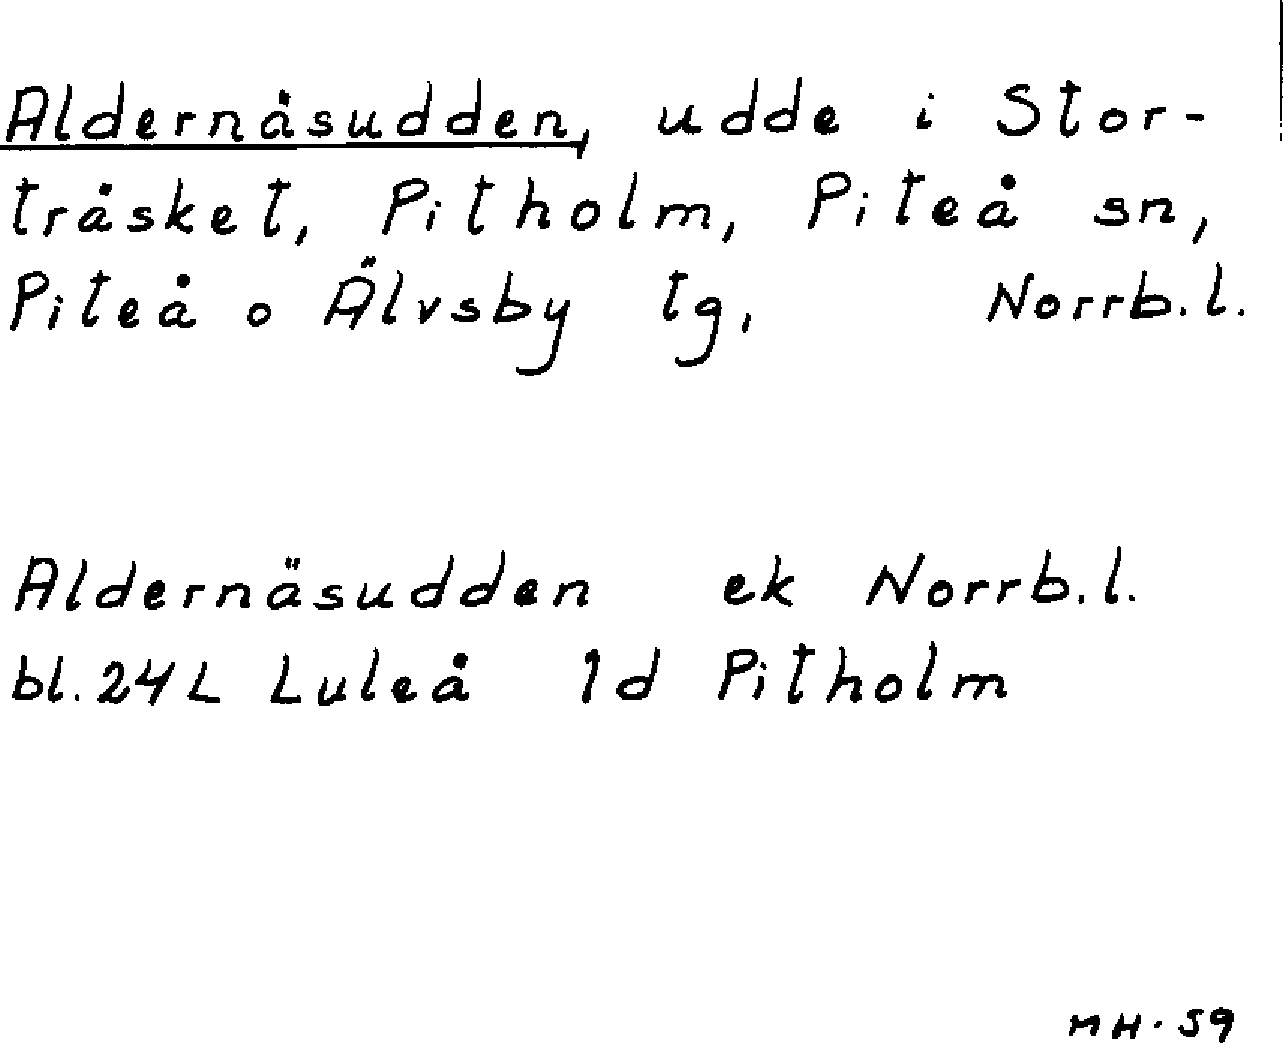 Aldernäsudden, udde i Stor-
träsket, Pitholm, Piteå sn,
Piteå o Älvsby tg, Norrb.l.
Aldernäsudden ek Norrb.l.
bl. 24L Luleå 1d Pitholm
MH. 59